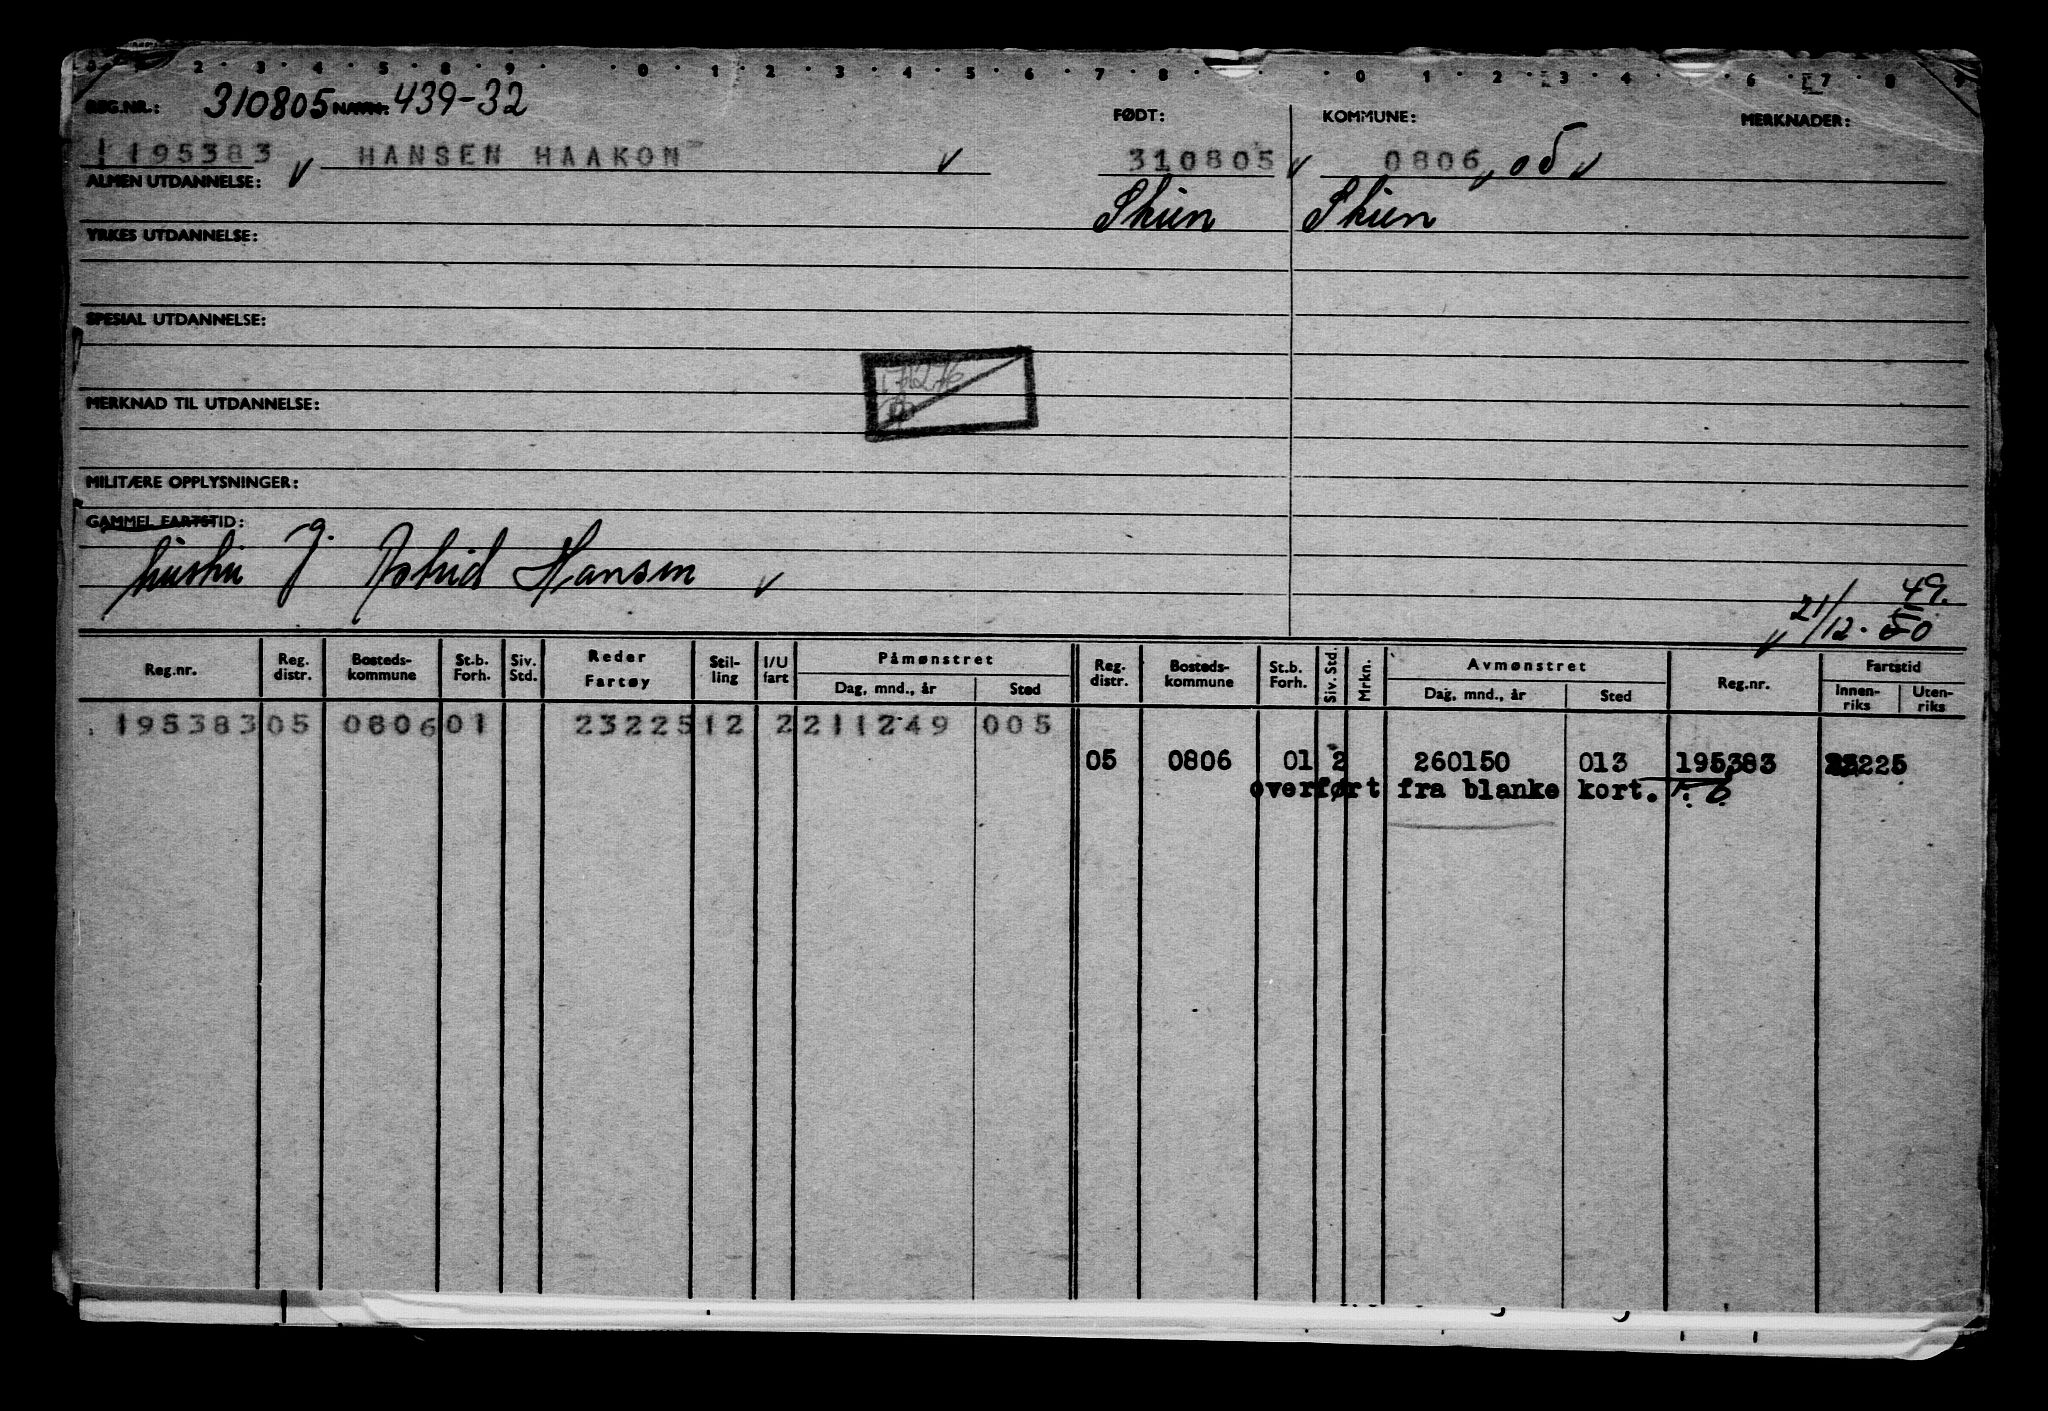 0 1 2 3 4 5 8 9 0 1 2 3 4 5 6 7 8 0 1 2 3 4 6 7 8 9
REG.NR.: 310805 NAVN: 439-32 FØDT: KOMMUNE: MERKNADER:
195383 HANSEN HAAKON 310805 0806 05
ALMEN UTDANNELSE: Skien Skien
YRKES UTDANNELSE:
SPESIAL UTDANNELSE:
MERKNAD TIL UTDANNELSE:
MILITÆRE OPPLYSNINGER:
GAMMEL FARTSTID:
hustru J. Astrid Hansen
49.
21/12. 50
Reg.nr. Reg. distr. Bosteds- kommune St.b. Forh. Siv. Std. Reder Fartøy Stil- ling I/U fart Påmønstret Dag, mnd., år Sted Reg. distr. Bosteds- kommune St.b. Forh. Siv. Std. Mrkn. Avmønstret Dag, mnd., år Sted Reg.nr. Fartstid Innen- riks Uten- riks
195383 05 0806 01 23225 12 2 211249 005
05 0806 01 2 260150 013 195383 23225
overført fra blanke kort.